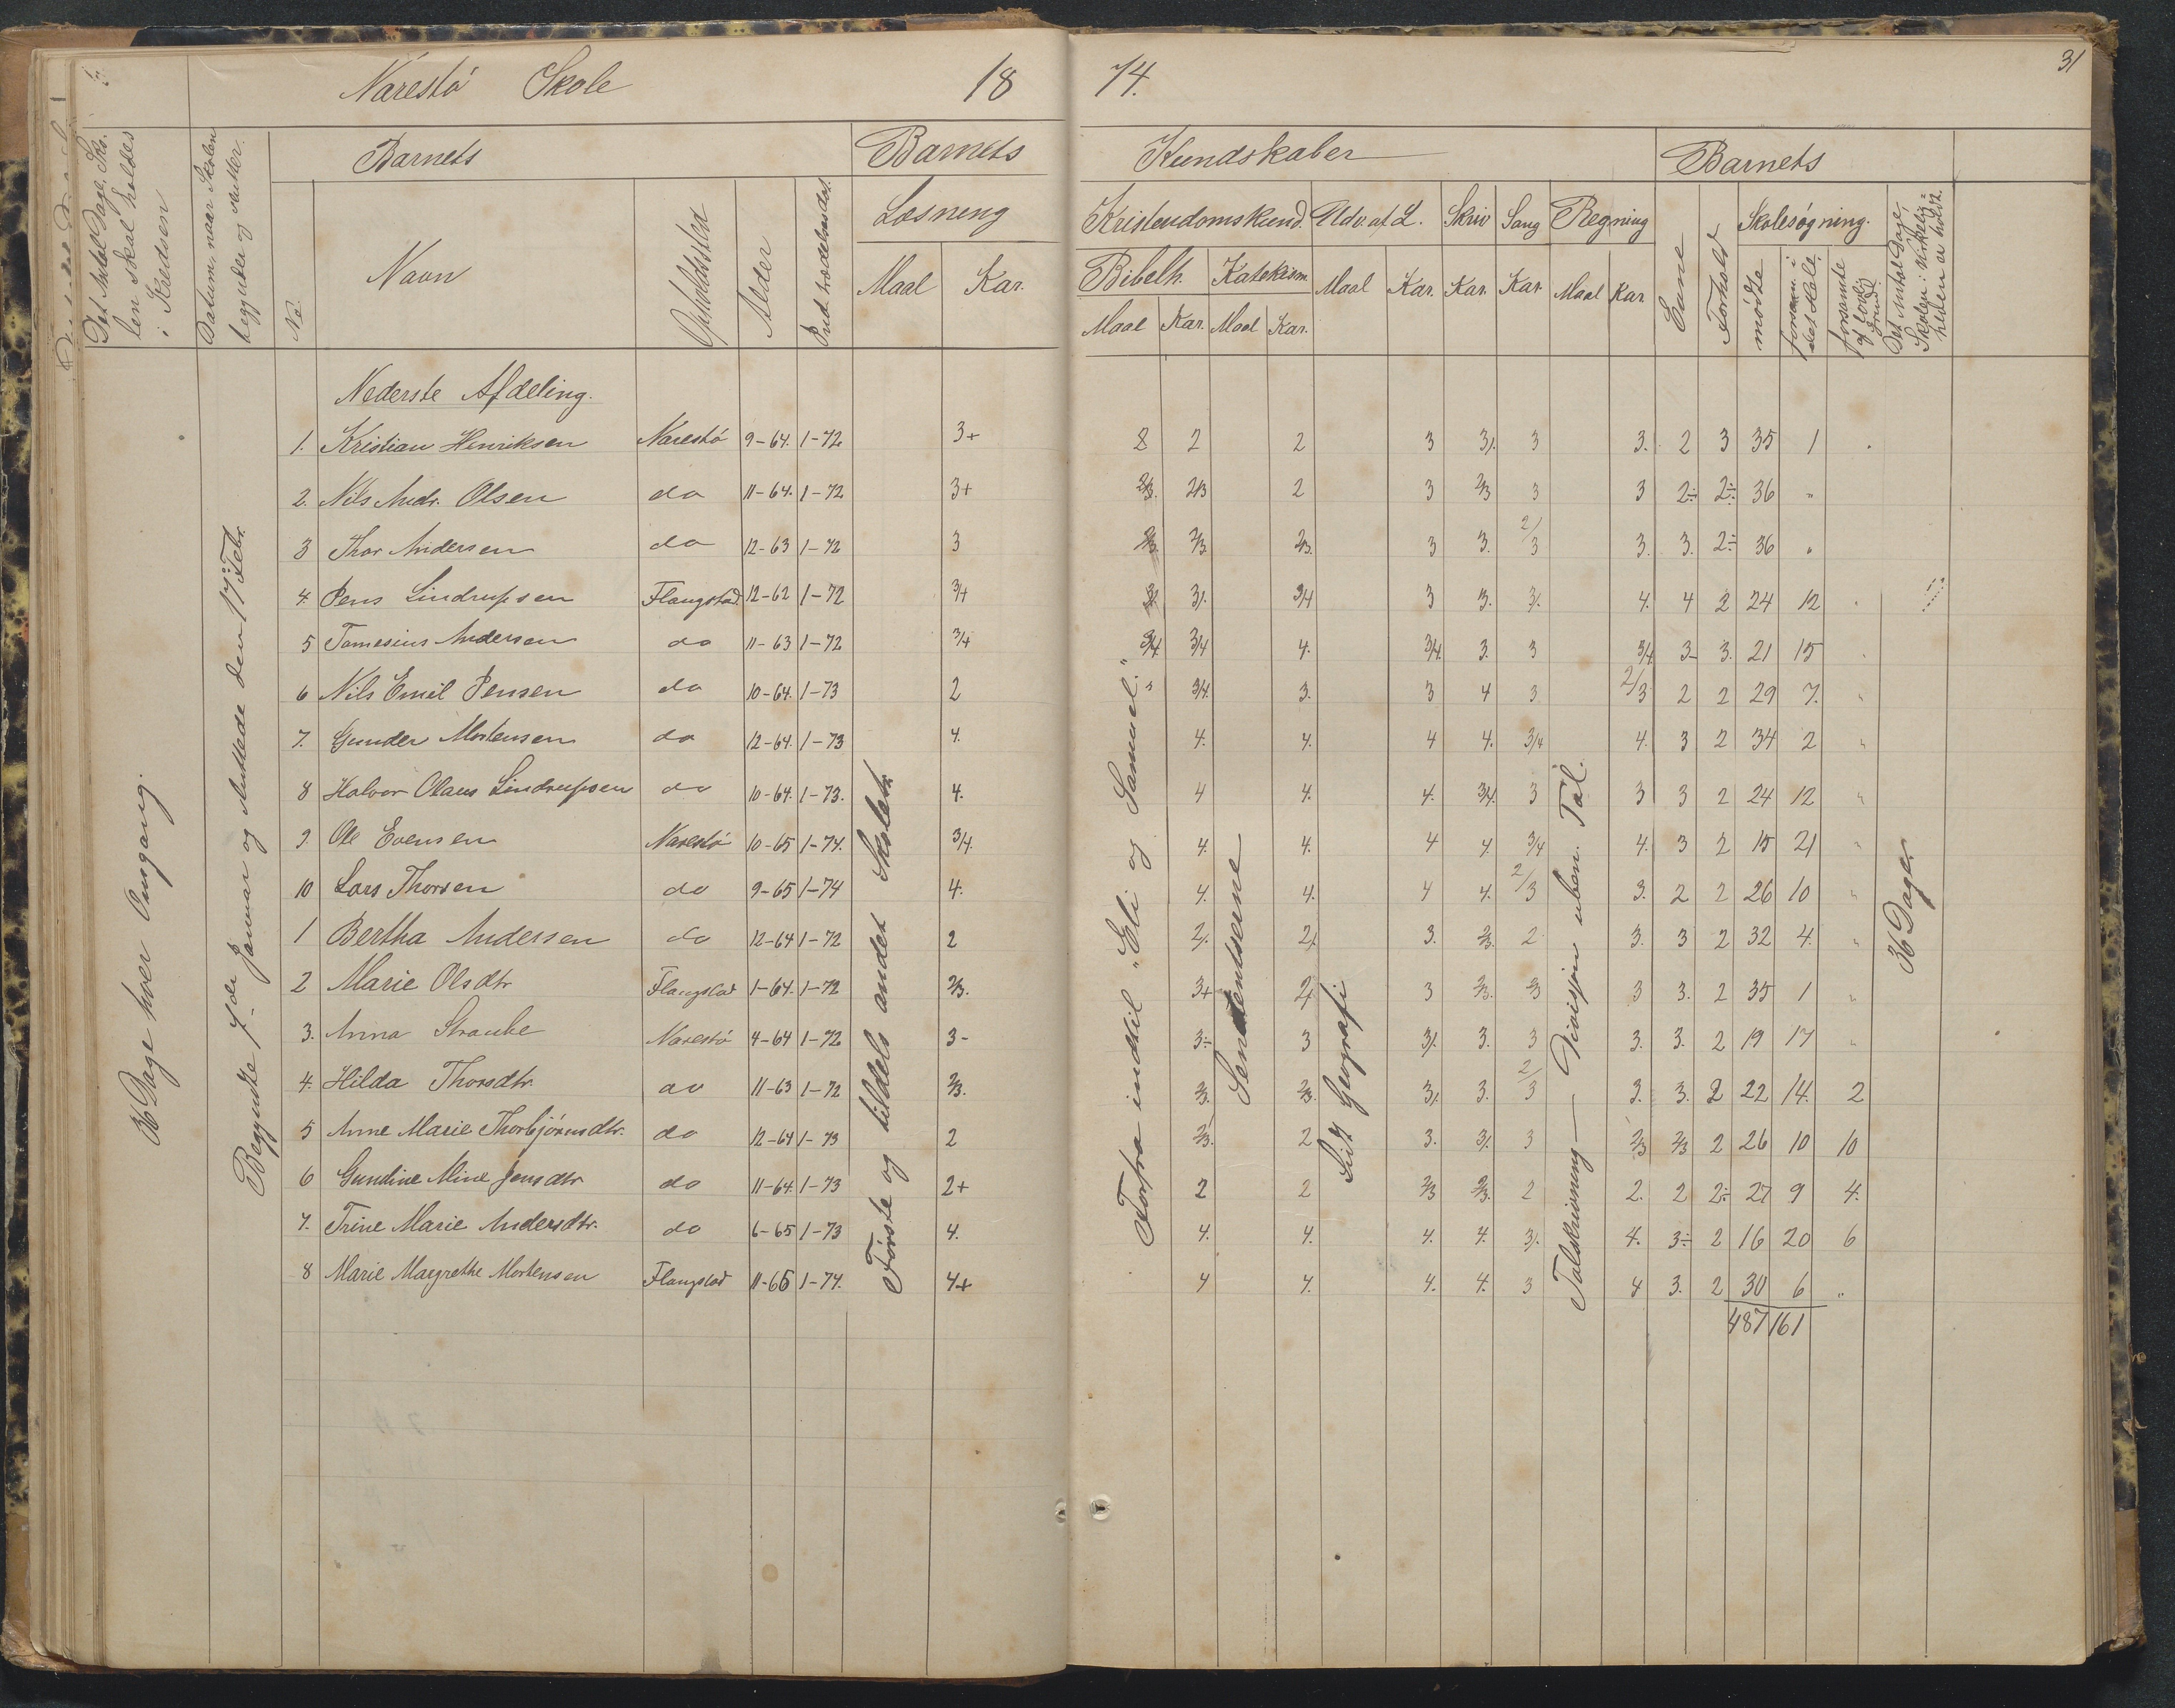 Narestö Skole 18 74. 31
Barnets Barnets Kundskaber Barnets
Det Antal Dage, Sko-
len skal holdes
i Kredsen
Datum, naar Skolen
begynder og slutter.
No. Navn Opholdssted Alder Indtrædelsesdat.
Læsning Kristendomskund. Udv. af L. Skriv Sang Regning Evne Forhold Skolesøgning.
Maal Kar. Bibelh. Katekism Maal Kar. Kar. Kar. Maal Kar.
Maal Kar. Maal Kar.
mødte forsøm. i det Hele forsømte af lovlig Grund
Det Antal Dage,
Skolen i Virkelig-
heden er holdt.
36 Dage hver Omgang.
Begyndte 7-de Januar og sluttede den 17: Febr.
Nederste Afdeling.
1. Kristian Henriksen Narestö 9-64. 1-72 3+ 2 2 2 3 3/. 3 3. 2 3 35 1 .
2. Nils Andr. Olsen do 11-64. 1-72 3+ 2/3. 2/3 2 3 2/3 3 3 2÷ 2÷ 36 "
3 Thor Andersen do 12-63 1-72 3 2/3. 2/3. 2/3. 3 3. 2/3 3. 3. 2÷ 36 "
4. Jens Lindrupsen Flangstad. 12-62 1-72 3/4 3. 3/. 3/4 3 3. 3/. 4. 4 2 24 12 "
5 Tomesius Andersen do 11-63 1-72 3/4 3/4 3/4 4. 3/4. 3. 3 3/4 3- 3. 21 15 "
6 Nils Emil Jensen do 10-64. 1-73 2 " 3/4. 3. 3 4 3 2/3 2 2 29 7. "
7. Gunder Mortensen do 12-64. 1-73 4. 4. 4. 4 4. 3/4 4. 3 2 34 2 "
8 Halvor Olaus Lindrupsen do 10-64. 1-73. 4. 4 4. 4. 3/4. 3 3 3 2 24 12 "
9. Ole Evensen Narestö 10-65 1-74. 3/4. 4. 4. 4 4. 3/4 4. 3 2 15 21 "
10 Lars Thorsen do 9-65 1-74 4. 4. 4. 4 4. 2/3 3. 2 2 26 10 "
1 Bertha Andersen do 12-64 1-72 2 2/. 2/. 3. 2/3. 2 3. 3 2 32 4. "
2 Marie Olsdtr Flangstad 1-64. 1-72 2/3. 3+ 2/. 3 2/3. 2/3 3 3. 2 35 1 "
3. Anna Straube Narestö 4-64 1-72 3- 3÷ 3 3/. 3. 3 3. 3. 2 19 17 "
4. Hilda Thorsdtr. do 11-63 1-72 2/3. 2/3. 2/3. 3/. 3. 2/3 3. 3. 2 22 14. 2
5 Anne Marie Thorbjörnsdtr. do 12-64 1-73 2 2/3. 2 3. 3/. 3 2/3 2/3 2 26 10 10
6 Gundine Mine Jensdtr do 11-64. 1-73 2+ 2 2 2/3 2/3. 2 2. 2 2÷ 27 9 4.
7. Trine Marie Andersdtr. do 6-65 1-73 4. 4. 4. 4. 4. 3/. 4. 3÷ 2 16 20 6
8 Marie Margrethe Mortensen Flangstad 11-66 1-74. 4+ 4 4. 4. 4. 3 4 3. 2 30 6 "
487 161
Første og tildels andet Skoletr.
Forfra indtil "Eli og Samuel."
Lidt Geografi
Talskrivning — Divisjon uben. Tal.
36 Dager